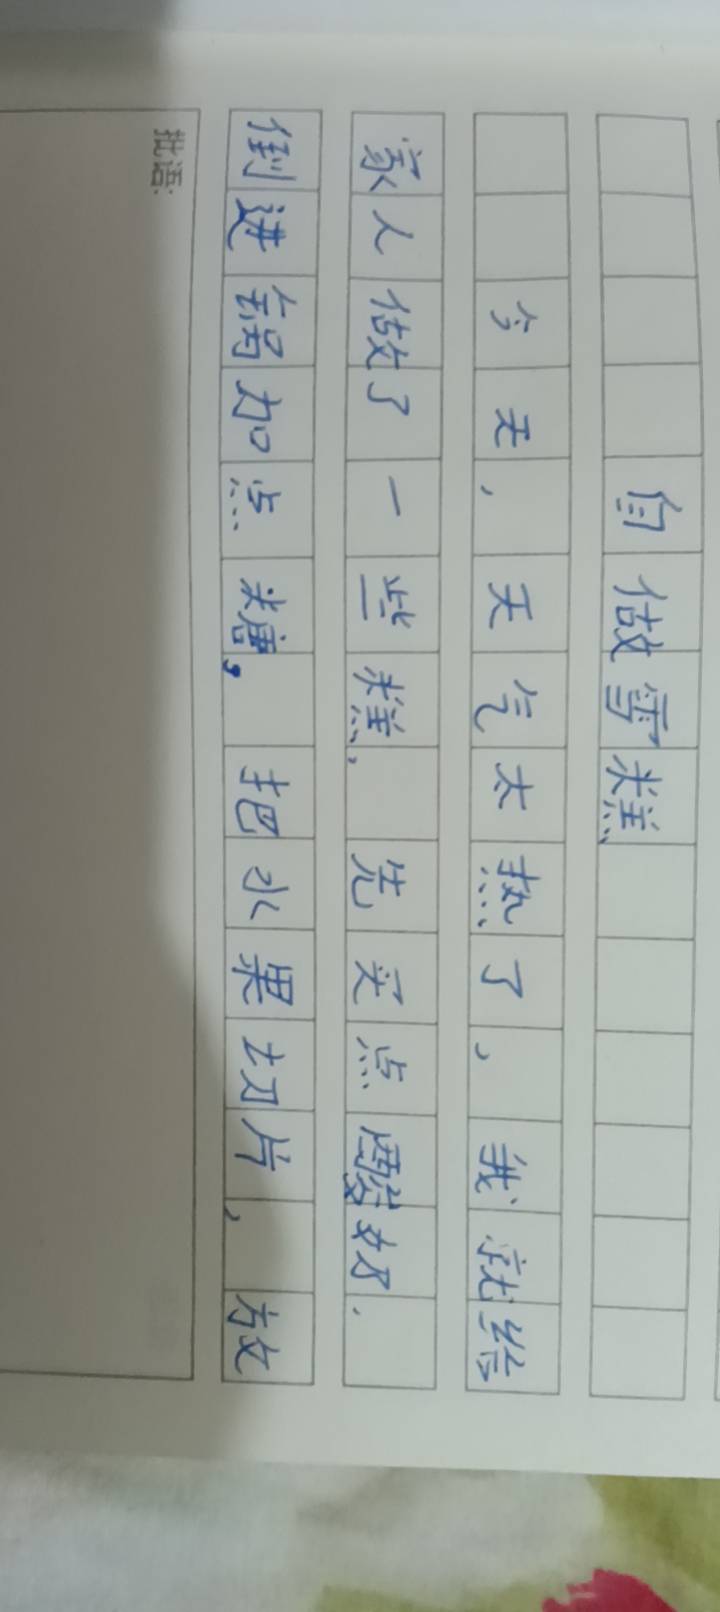 自做雪糕
今天，天气太热了，我就给
家人做了一些糕，先买点酸奶，
倒进锅加点糖，把水果切片，放
批语: